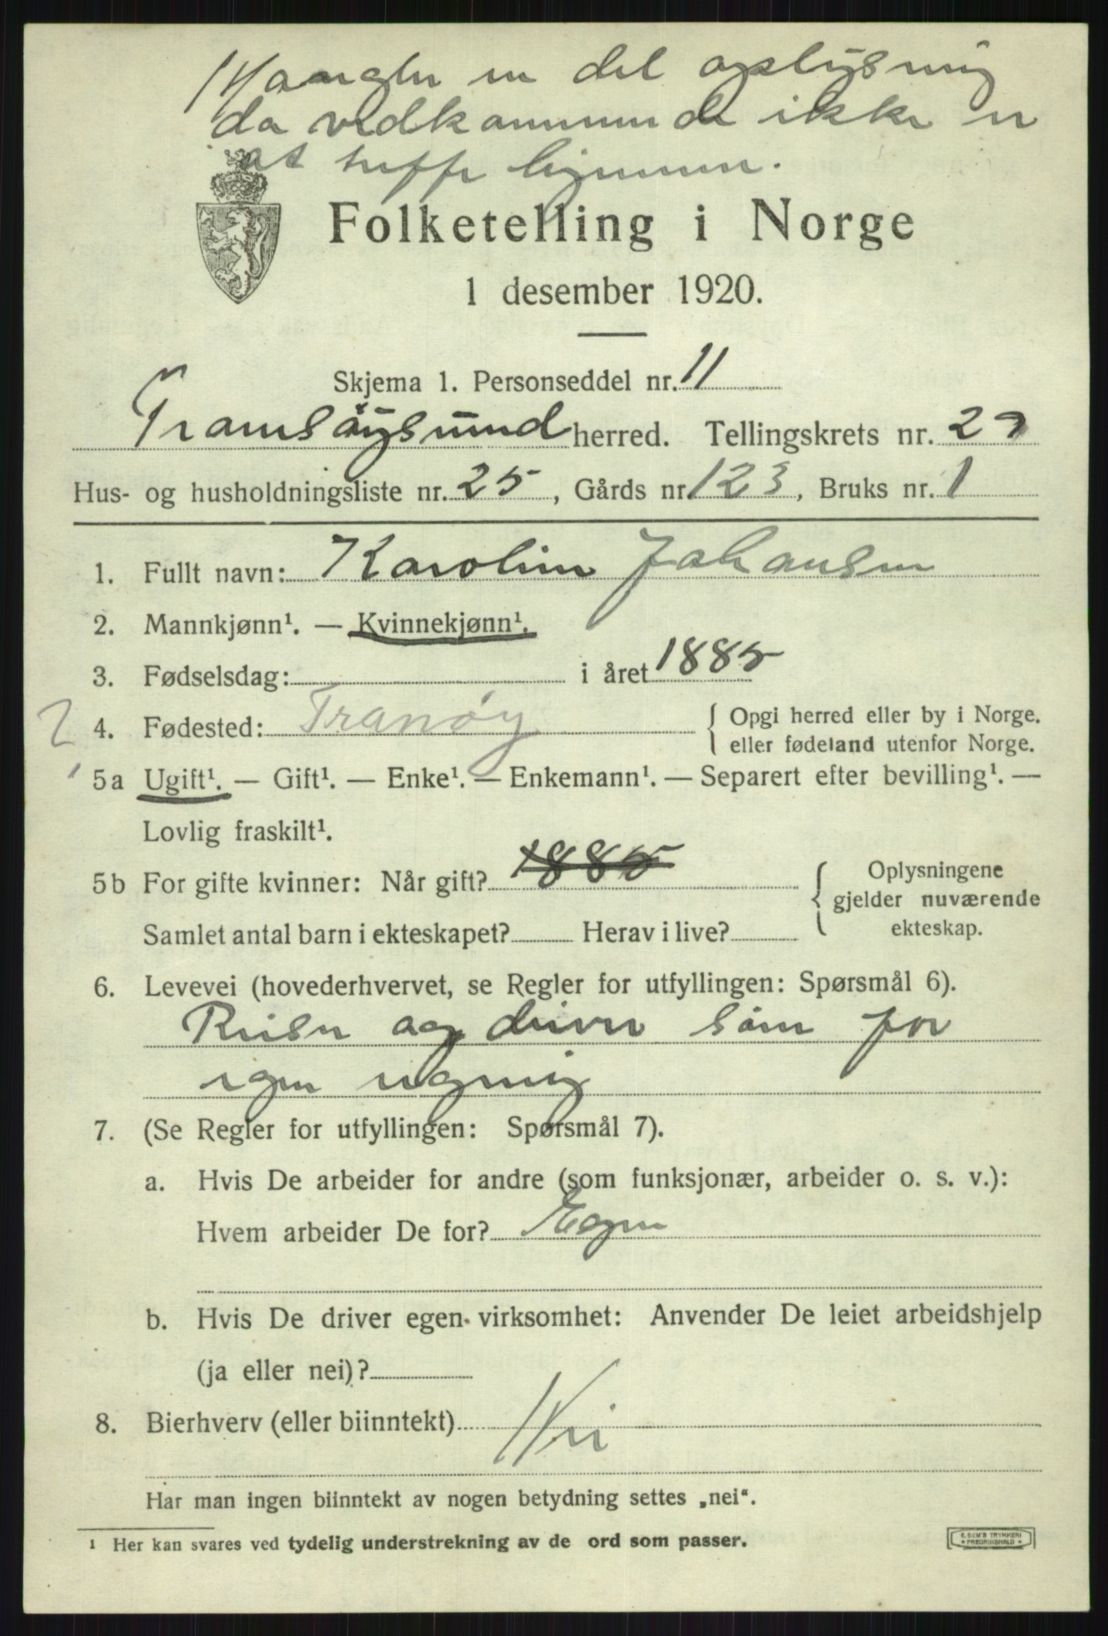 Mangler en del oplysning
da vedkommende ikke er
at treffe hjemme.
Folketelling i Norge
1 desember 1920.
Skjema 1. Personseddel nr. 11
Tromsøysund herred. Tellingskrets nr. 29
Hus- og husholdningsliste nr. 25, Gårds nr. 123, Bruks nr. 1
1. Fullt navn: Karoline Johansen
2. Mannkjønn¹. — Kvinnekjønn¹.
3. Fødselsdag: i året 1885
4. Fødested: Tranøy { Opgi herred eller by i Norge.
eller fødeland utenfor Norge.
5a Ugift¹. — Gift¹. — Enke¹. — Enkemann¹. — Separert efter bevilling¹. —
Lovlig fraskilt¹.
5b For gifte kvinner: Når gift? 1885
Samlet antal barn i ekteskapet? Herav i live?
{ Oplysningene
gjelder nuværende
ekteskap.
6. Levevei (hovederhvervet, se Regler for utfyllingen: Spørsmål 6).
Reiser og driver søm for
egen regning
7. (Se Regler for utfyllingen: Spørsmål 7).
a. Hvis De arbeider for andre (som funksjonær, arbeider o. s. v.):
Hvem arbeider De for? Egen
b. Hvis De driver egen virksomhet: Anvender De leiet arbeidshjelp
(ja eller nei)?
8. Bierhverv (eller biinntekt) Nei
Har man ingen biinntekt av nogen betydning settes „nei“.
¹ Her kan svares ved tydelig understrekning av de ord som passer.
E. SEM'S TRYKKERI
FREDRIKSHALD